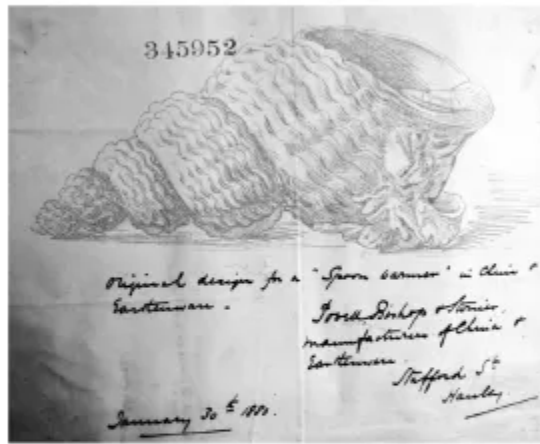 345952
Original design for a "Spoon warmer" in China &
Earthenware.
Powell, Bishop & Stonier,
manufacturers of China &
Earthenware.
Stafford St
Hanley
January 30th 1880.